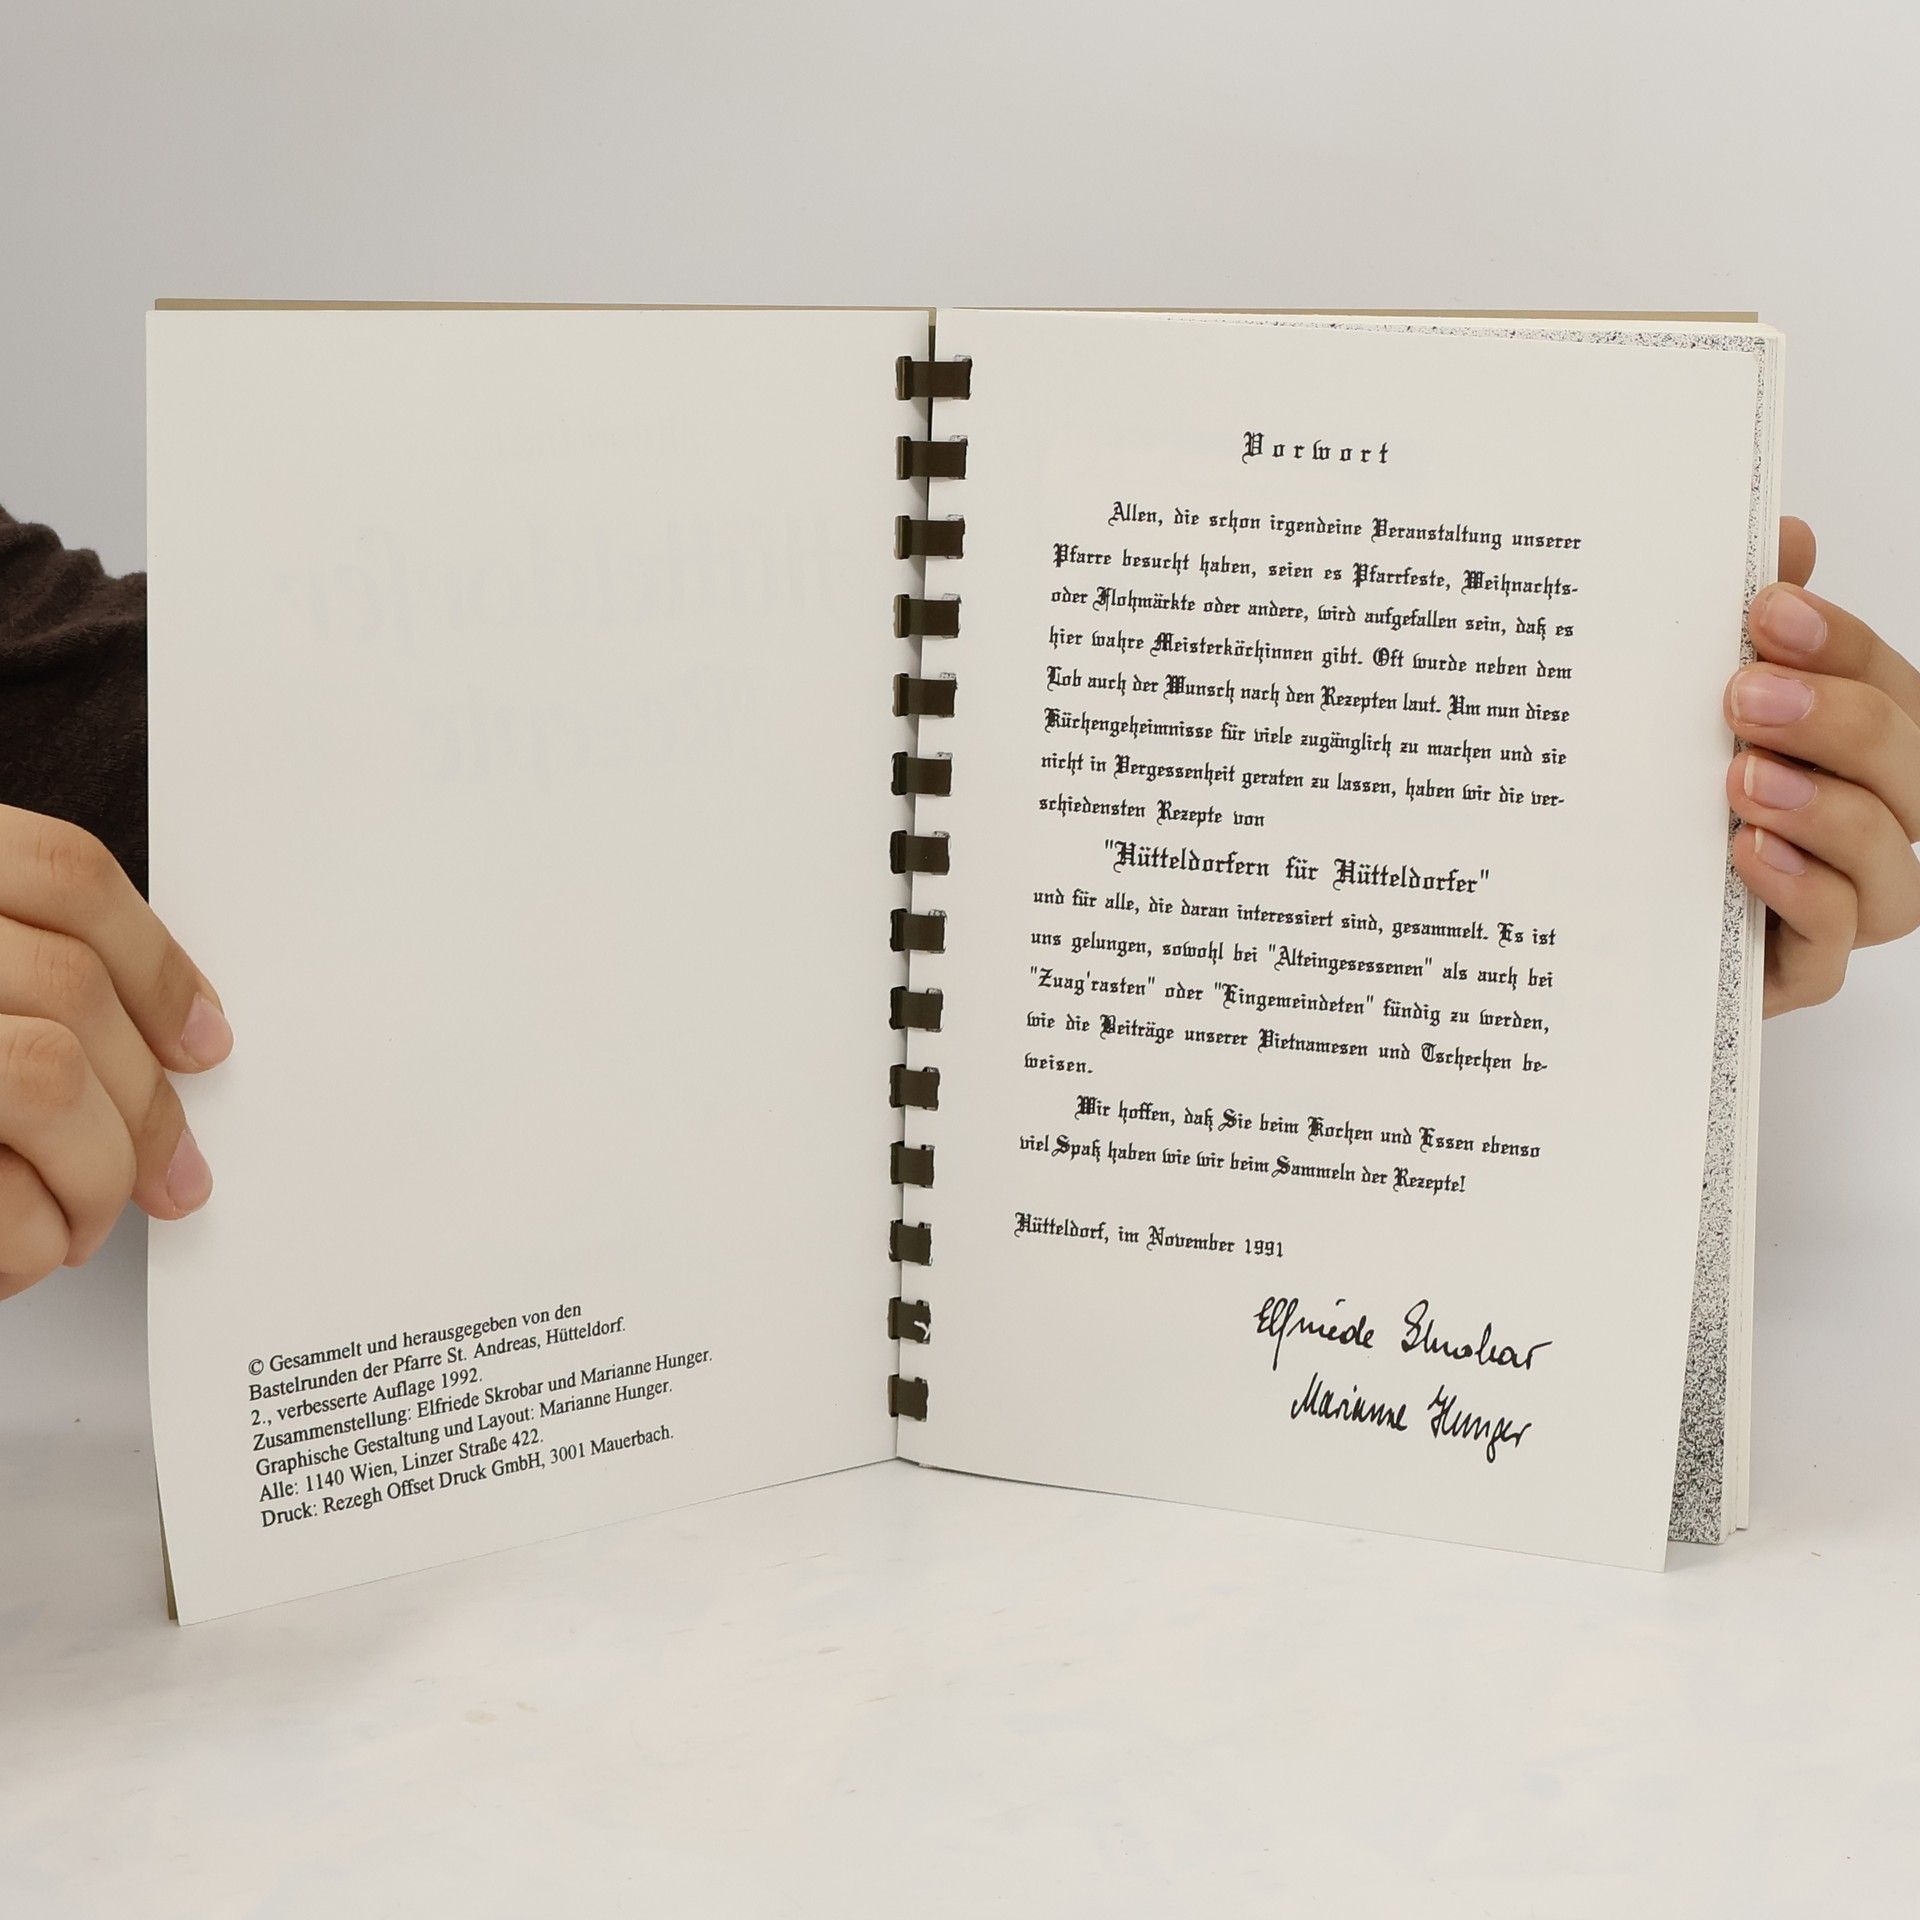 © Gesammelt und herausgegeben von den
Bastelrunden der Pfarre St. Andreas, Hütteldorf.
2., verbesserte Auflage 1992.
Zusammenstellung: Elfriede Skrobar und Marianne Hunger.
Graphische Gestaltung und Layout: Marianne Hunger.
Alle: 1140 Wien, Linzer Straße 422.
Druck: Rezegh Offset Druck GmbH, 3001 Mauerbach.
Vorwort
Allen, die schon irgendeine Veranstaltung unserer
Pfarre besucht haben, seien es Pfarrfeste, Weihnachts-
oder Flohmärkte oder andere, wird aufgefallen sein, daß es
hier wahre Meisterköchinnen gibt. Oft wurde neben dem
Lob auch der Wunsch nach den Rezepten laut. Um nun diese
Küchengeheimnisse für viele zugänglich zu machen und sie
nicht in Vergessenheit geraten zu lassen, haben wir die ver-
schiedensten Rezepte von
"Hütteldorfern für Hütteldorfer"
und für alle, die daran interessiert sind, gesammelt. Es ist
uns gelungen, sowohl bei "Alteingesessenen" als auch bei
"Zuag'rasten" oder "Eingemeindeten" fündig zu werden,
wie die Beiträge unserer Vietnamesen und Tschechen be-
weisen.
Wir hoffen, daß Sie beim Kochen und Essen ebenso
viel Spaß haben wie wir beim Sammeln der Rezepte!
Hütteldorf, im November 1991
Elfriede Skrobar
Marianne Hunger